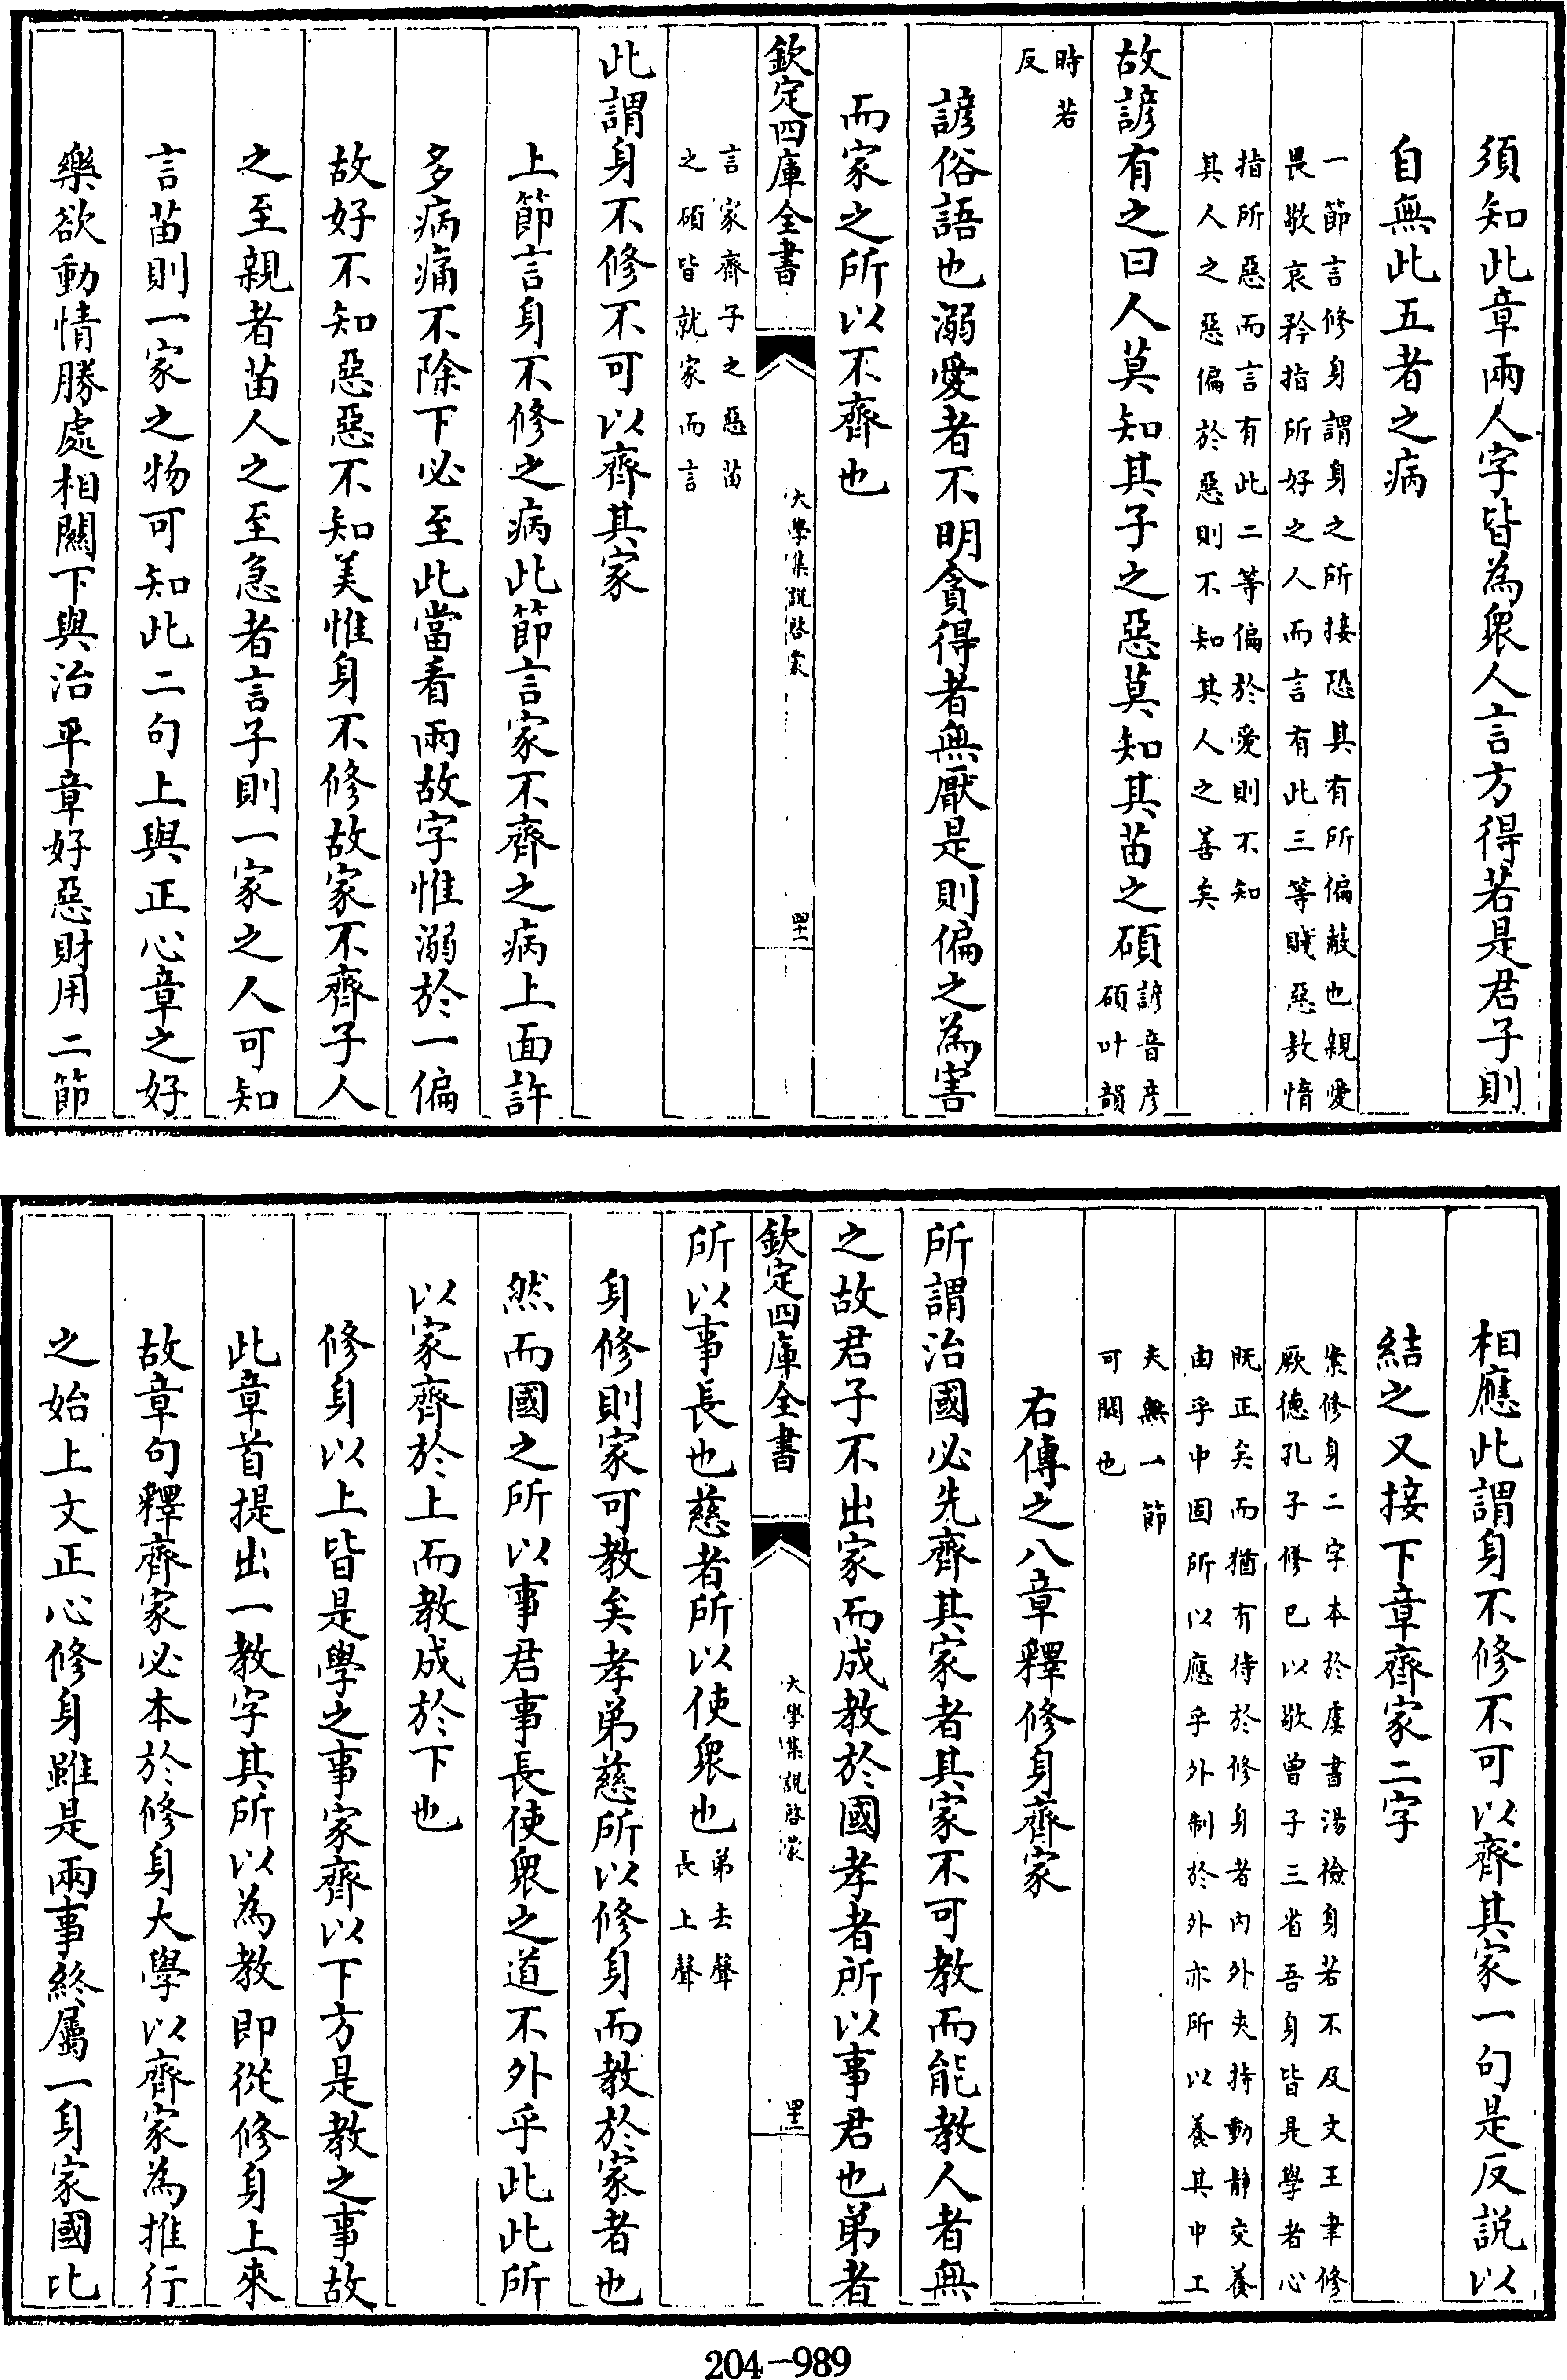 須知此章兩人字皆為衆人言方得若是君子則
自無此五者之病
一節言修身謂身之所接恐其有所偏蔽也親愛
畏敬哀矜指所好之人而言有此三等賤惡敖惰
指所惡而言有此二等偏於愛則不知
其人之惡偏於惡則不知其人之善矣
故諺有之曰人莫知其子之惡莫知其苗之碩
諺音彦
碩叶韻
時若
反
諺俗語也溺愛者不明貪得者無厭是則偏之為害
而家之所以不齊也
欽定四庫全書
大學集說啓蒙
四十一
言家齊子之惡苗
之碩皆就家而言
此謂身不修不可以齊其家
上節言身不修之病此節言家不齊之病上面許
多病痛不除下必至此當看兩故字惟溺於一偏
故好不知惡惡不知美惟身不修故家不齊子人
之至親者苗人之至急者言子則一家之人可知
言苗則一家之物可知此二句上與正心章之好
樂欲動情勝處相關下與治平章好惡財用二節
相應此謂身不修不可以齊其家一句是反說以
結之又接下章齊家二字
案修身二字本於虞書湯檢身若不及文王聿修
厥德孔子修已以敬曾子三省吾身皆是學者心
既正矣而猶有待於修身者内外夾持動靜交養
由乎中固所以應乎外制於外亦所以養其中工
夫無一節
可闕也
右傳之八章釋修身齊家
所謂治國必先齊其家者其家不可教而能教人者無
之故君子不出家而成教於國孝者所以事君也弟者
欽定四庫全書
大學集說啓蒙
四十二
所以事長也慈者所以使衆也
弟去聲
長上聲
身修則家可教矣孝弟慈所以修身而教於家者也
然而國之所以事君事長使衆之道不外乎此此所
以家齊於上而教成於下也
修身以上皆是學之事家齊以下方是教之事故
此章首提出一教字其所以為教即從修身上來
故章句釋齊家必本於修身大學以齊家為推行
之始上文正心修身雖是兩事終屬一身家國比
204-989